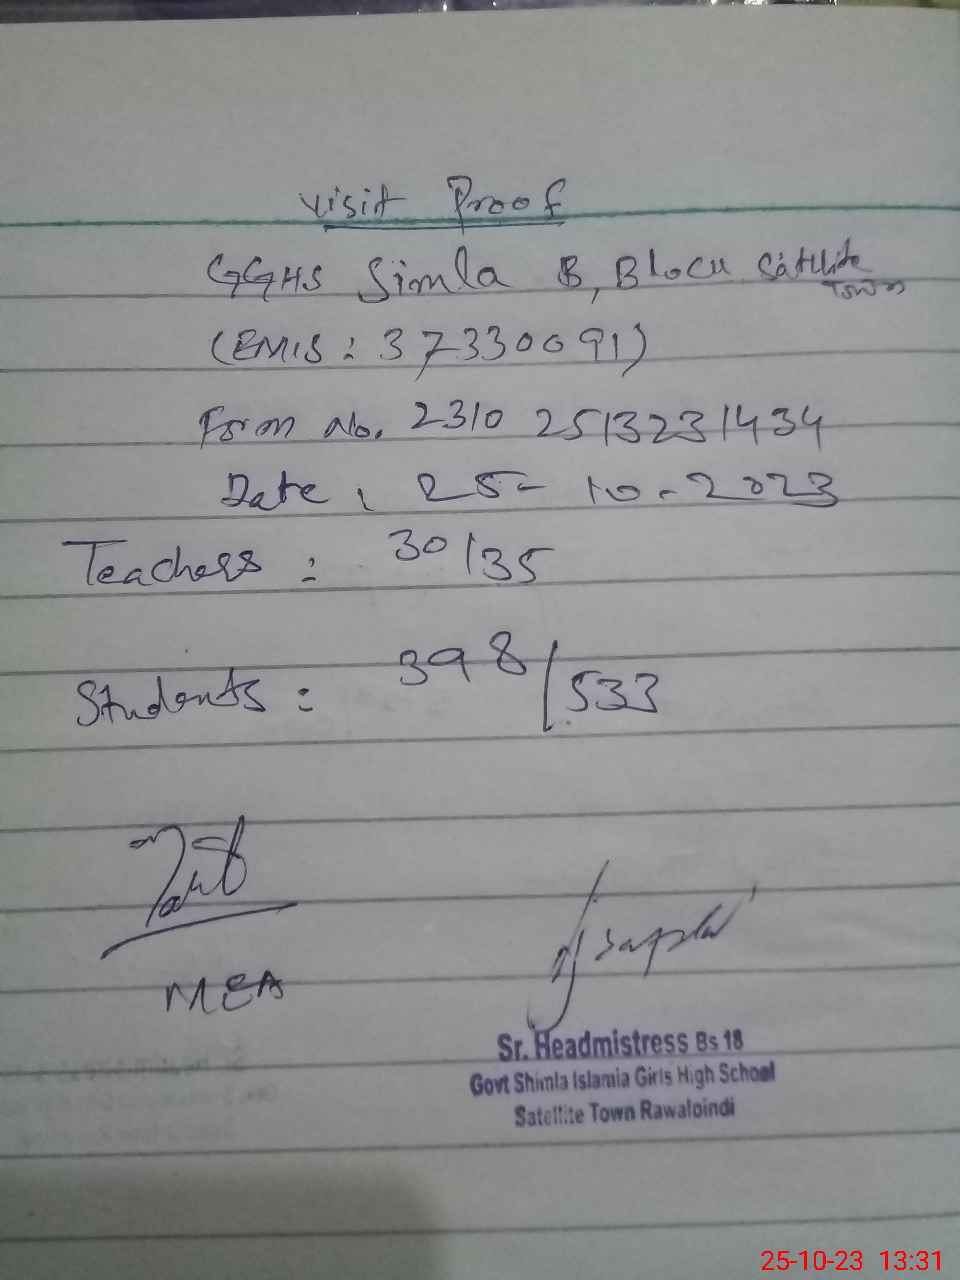 Visit Proof
GGHS Simla B, Block Satellite Town
(EMIS: 37330091)
Form No. 2310 2513231434
Date: 25-10-2023
Teachers: 30/35
Students: 398/533
MEA
Sr. Headmistress Bs 18
Govt Shimla Islamia Girls High School
Satellite Town Rawalpindi
25-10-23 13:31